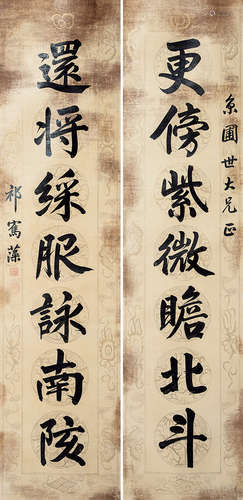 更傍紫微瞻北斗
圃世大兄正
還將綵服詠南陔
祁寯藻